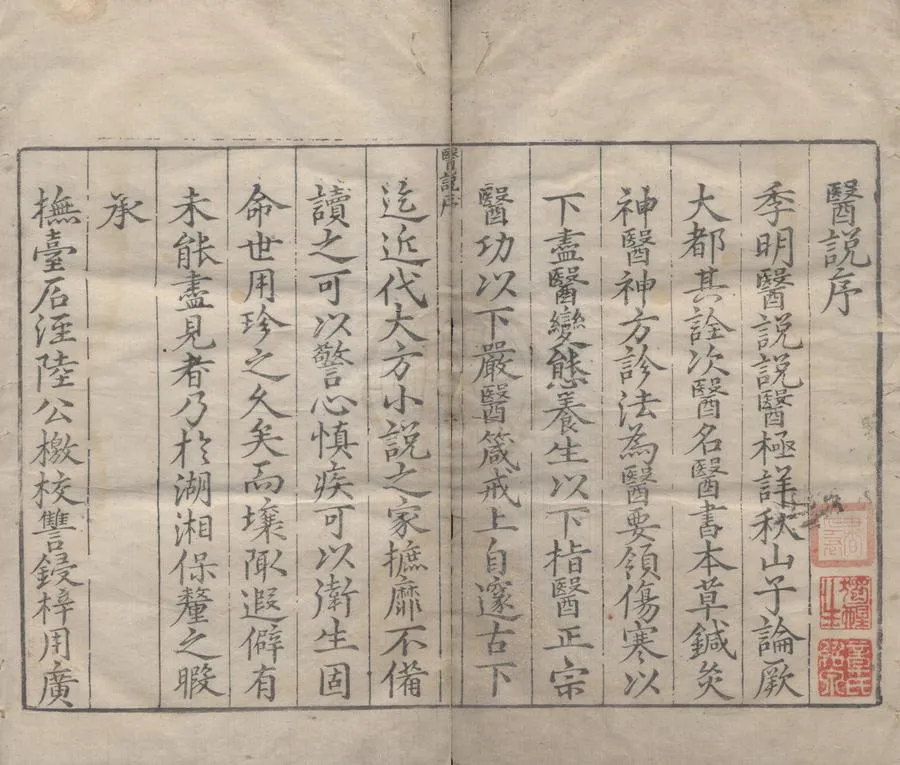 醫說序
季明醫說說醫極詳秋山子論厥
大都其詮次醫名醫書本草鍼灸
神醫神方診法為醫要領傷寒以
下盡醫變態養生以下楷醫正宗
醫功以下嚴醫箴戒上自邃古下
醫說序
迄近代大方小說之家摭靡不備
讀之可以警心慎疾可以衛生固
命世用珍之久矣而壤陬遐僻有
未能盡見者乃於湖湘保釐之暇
承
撫臺石涇陸公檄校讐鋟梓用廣